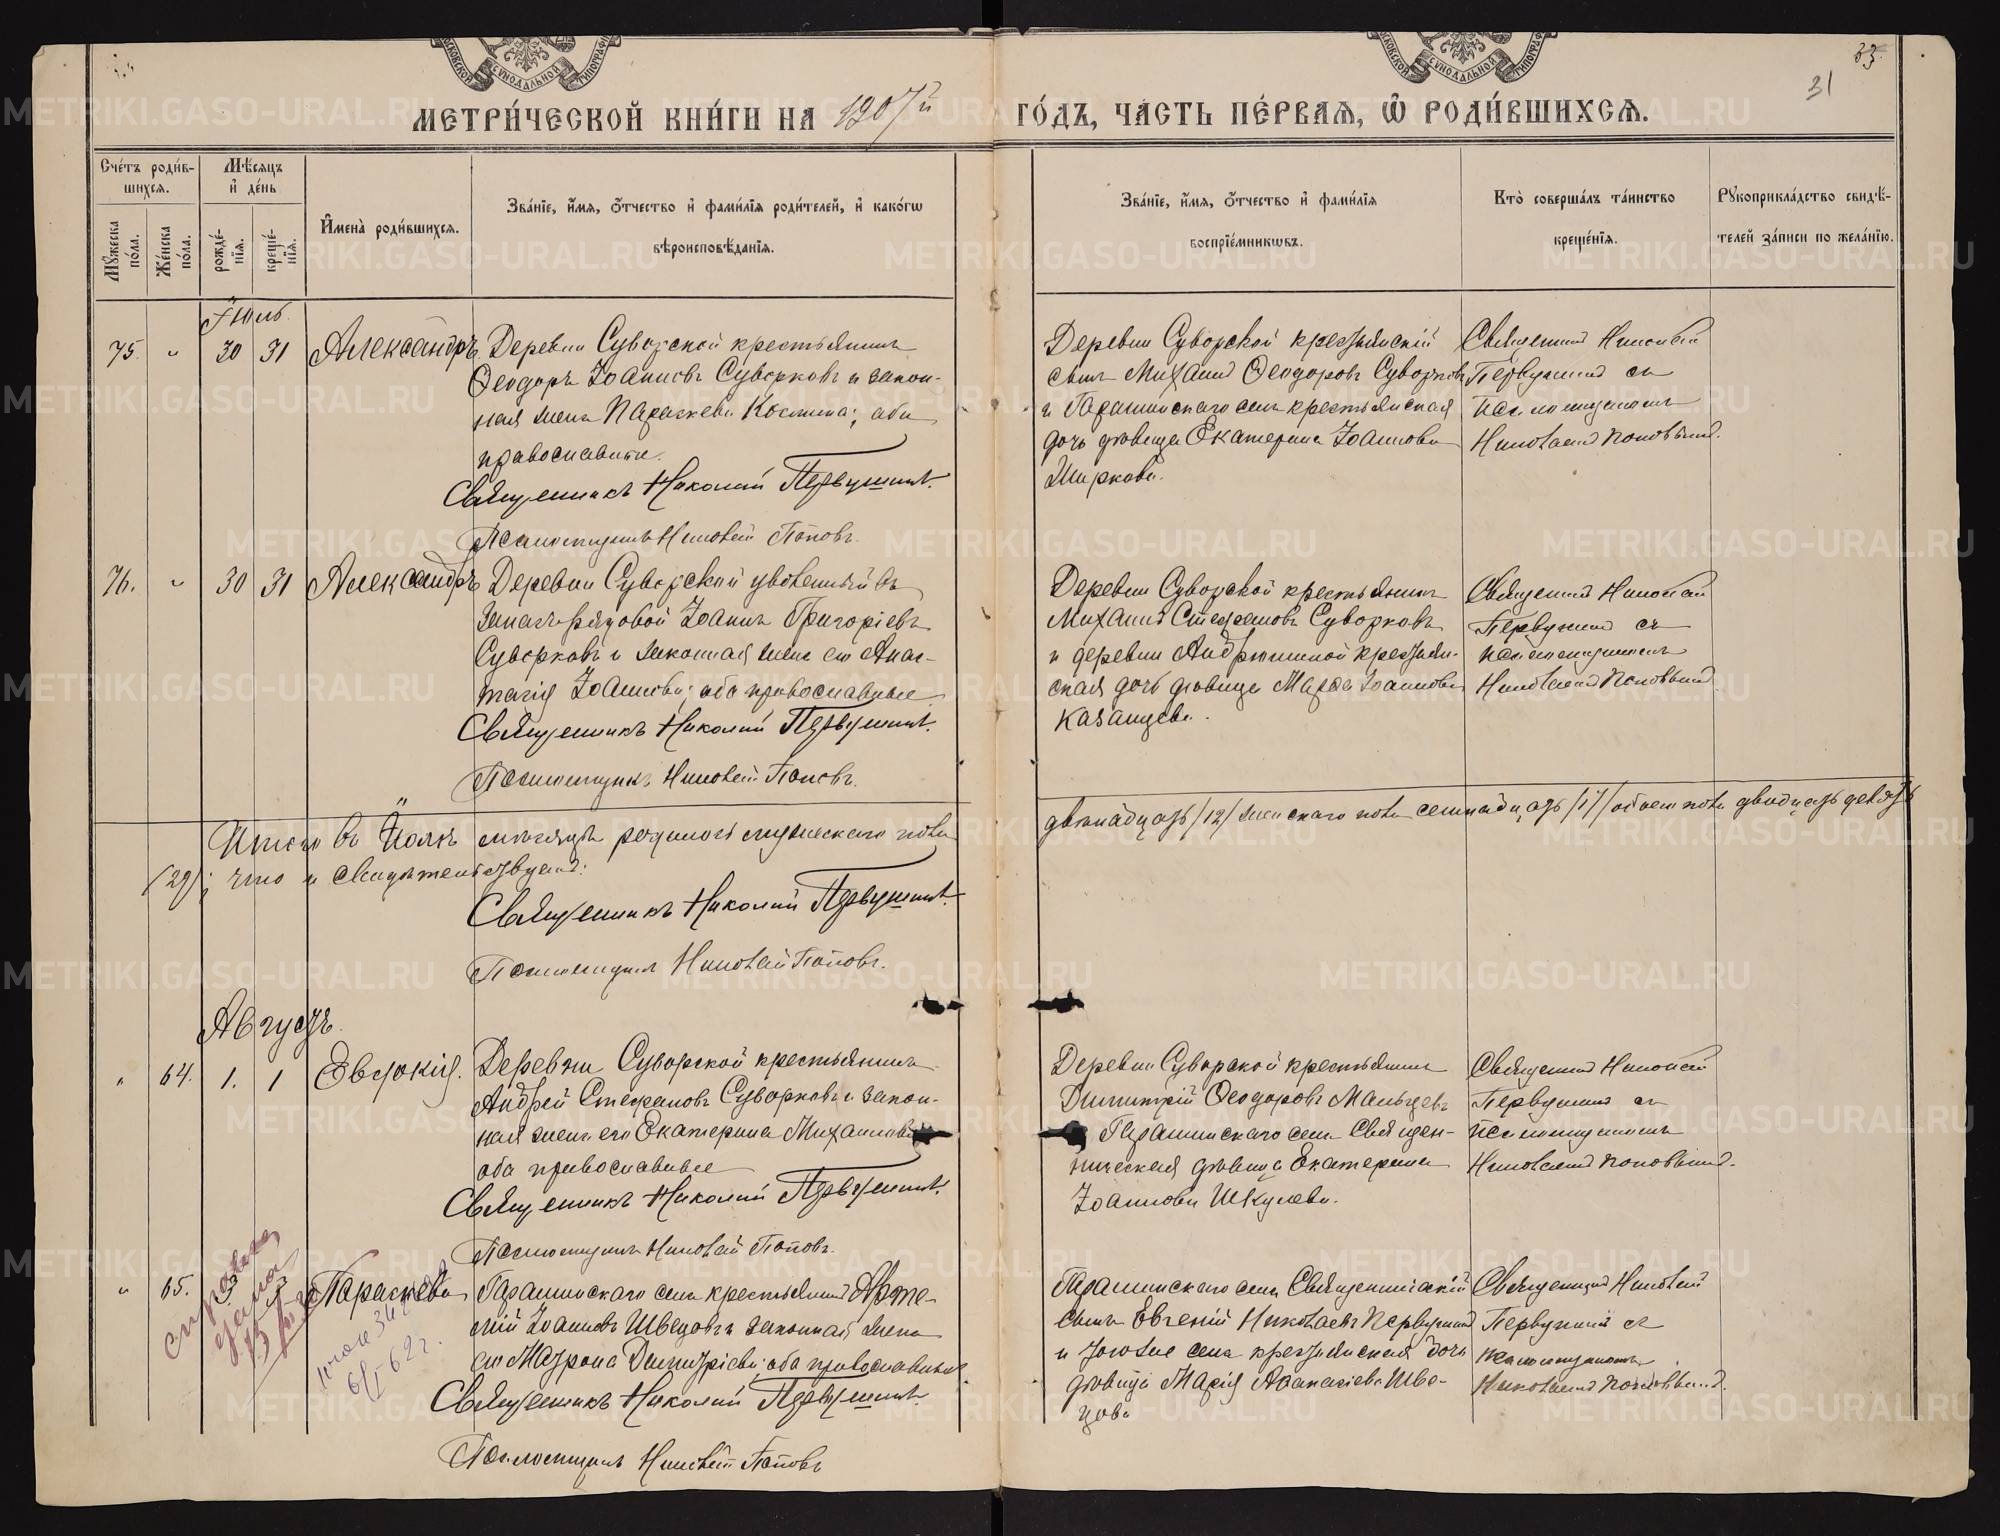 МЕТРИ́ЧЕСКОЙ КНИ́ГИ НА 1907й ГО́ДЪ, ЧА́СТЬ ПЕ́РВАѦ, Ѡ҆ РОДИ́ВШИХСѦ.
33.
31
Сче́тъ роди́в-
шихсѧ.
Мꙋ́жеска по́ла.
Же́нска по́ла.
Мѣ́сѧцъ
и҆ де́нь
рожде́-
нїѧ.
креще́-
нїѧ.
И҆мена̀ роди́вшихсѧ.
Зва́нїе, и҆́мѧ, ѻ҆́тчество и҆ фами́лїѧ роди́телей, и҆ како́гѡ
вѣроисповѣ́данїѧ.
Зва́нїе, и҆́мѧ, ѻ҆́тчество и҆ фами́лїѧ
воспрїе́мникѡвъ.
Кто̀ соверша́лъ та́инство
креще́нїѧ.
Рꙋкоприкла́дство свидѣ́-
телей за́писи по жела́нїю.
Іюль.
75. „ 30 31 Александръ.
Деревни Суворской крестьянинъ
Ѳеодоръ Іоанновъ Суворковъ и закон-
ная жена Параскева Косьмина; оба
православные.
Священникъ Николай Первушинъ.
Псаломщикъ Николай Поповъ.
Деревни Суворской крестьянскій
сынъ Михаилъ Ѳеодоровъ Суворковъ
и Гарашинскаго села крестьянская
дочь девица Екатерина Іоаннова
Ширкова.
Священникъ Николай
Первушинъ съ
псаломщикомъ
Николаемъ Поповымъ.
76. „ 30 31 Александръ
Деревни Суворской уволенный въ
запасъ рядовой Іоаннъ Григоріевъ
Суворковъ и законная жена его Анас-
тасія Іоаннова; оба православные
Священникъ Николай Первушинъ.
Псаломщикъ Николай Поповъ.
Деревни Суворской крестьянинъ
Михаилъ Стефановъ Суворковъ
и деревни Андрюшиной крестьян-
ская дочь девица Марѳа Іоаннова
Казанцева.
Священникъ Николай
Первушинъ съ
псаломщикомъ
Николаемъ Поповымъ
Итого въ Іюлѣ месяцѣ родилось мужескаго пола
двѣнадцать /12/ женскаго пола семнадцать /17/ обоего пола двадцать девять
/29/; что и свидѣтельствуемъ:
Священникъ Николай Первушинъ.
Псаломщикъ Николай Поповъ.
Августъ.
„ 64. 1. 1 Евдокія.
Деревни Суворской крестьянинъ
Андрей Стефановъ Суворковъ и закон-
ная жена его Екатерина Михаилова
оба православные
Священникъ Николай Первушинъ.
Псаломщикъ Николай Поповъ.
Деревни Суворской крестьянинъ
Димитрій Ѳеодоровъ Мальцевъ
Гарашинскаго села Священ-
ническая девица Екатерина
Іоаннова Шкулева.
Священникъ Николай
Первушинъ съ
псаломщикомъ
Николаемъ Поповымъ.
„ 65. 3 3 Параскева
Гарашинскаго села крестьянинъ Арте-
мій Іоанновъ Швецовъ и законная жена
его Матрона Димитріева; оба православные
Священникъ Николай Первушинъ.
Псаломщикъ Николай Поповъ
Гарашинскаго села Священническій
сынъ Евгеній Николаевъ Первушинъ
и тогоже села крестьянская дочь
девица Марія Аѳанасіева Шве-
цова
Священникъ Николай
Первушинъ съ
псаломщикомъ
Николаемъ Поповымъ.
справка
дана
6/I 62 г.
METRIKI.GASO-URAL.RU